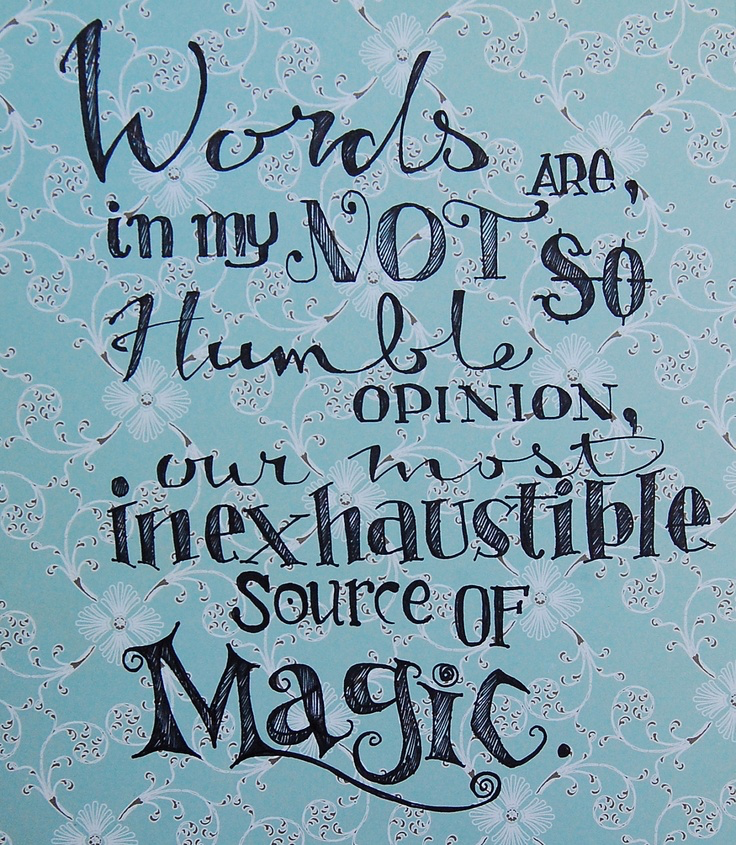 Words ARE,
in my NOT SO
Humble
OPINION,
our most
inexhaustible
source OF
Magic.